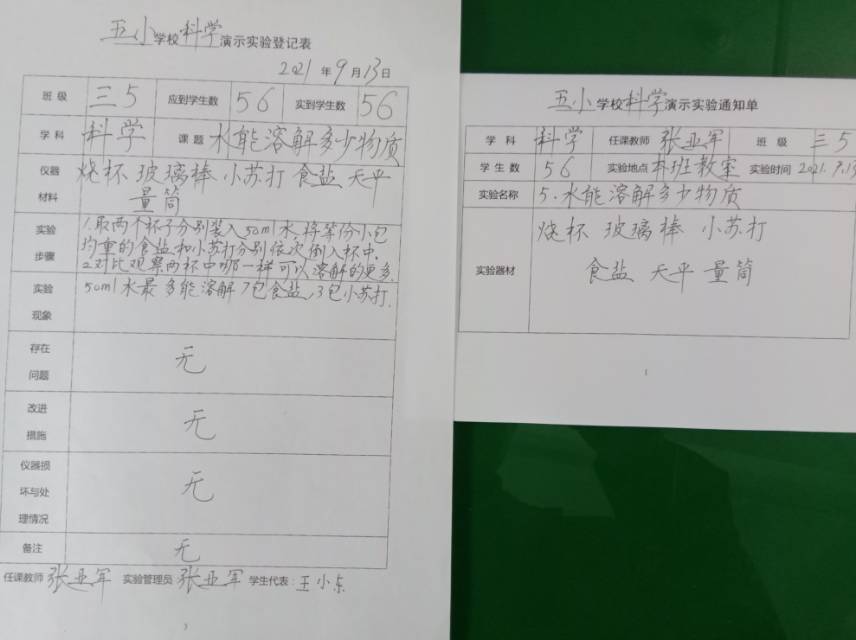 五小学校科学演示实验登记表
2021 年 9 月 13 日
班 级 三5 应到学生数 56 实到学生数 56
学 科 科学 课 题 水能溶解多少物质
仪器材料 烧杯 玻璃棒 小苏打 食盐 天平
量筒
实验步骤 1.取两个杯子分别装入50ml水,将等份小包
均重的食盐和小苏打分别依次倒入杯中.
2.对比观察两杯中哪一样可以溶解的更多.
实验现象 50ml水最多能溶解7包食盐,3包小苏打.
存在问题 无
改进措施 无
仪器损坏与处理情况 无
备注 无
任课教师 张亚军 实验管理员 张亚军 学生代表:王小东
五小学校科学演示实验通知单
学 科 科学 任课教师 张亚军 班 级 三5
学 生 数 56 实验地点 本班教室 实验时间 2021.9.13
实验名称 5.水能溶解多少物质
实验器材 烧杯 玻璃棒 小苏打
食盐 天平 量筒
1